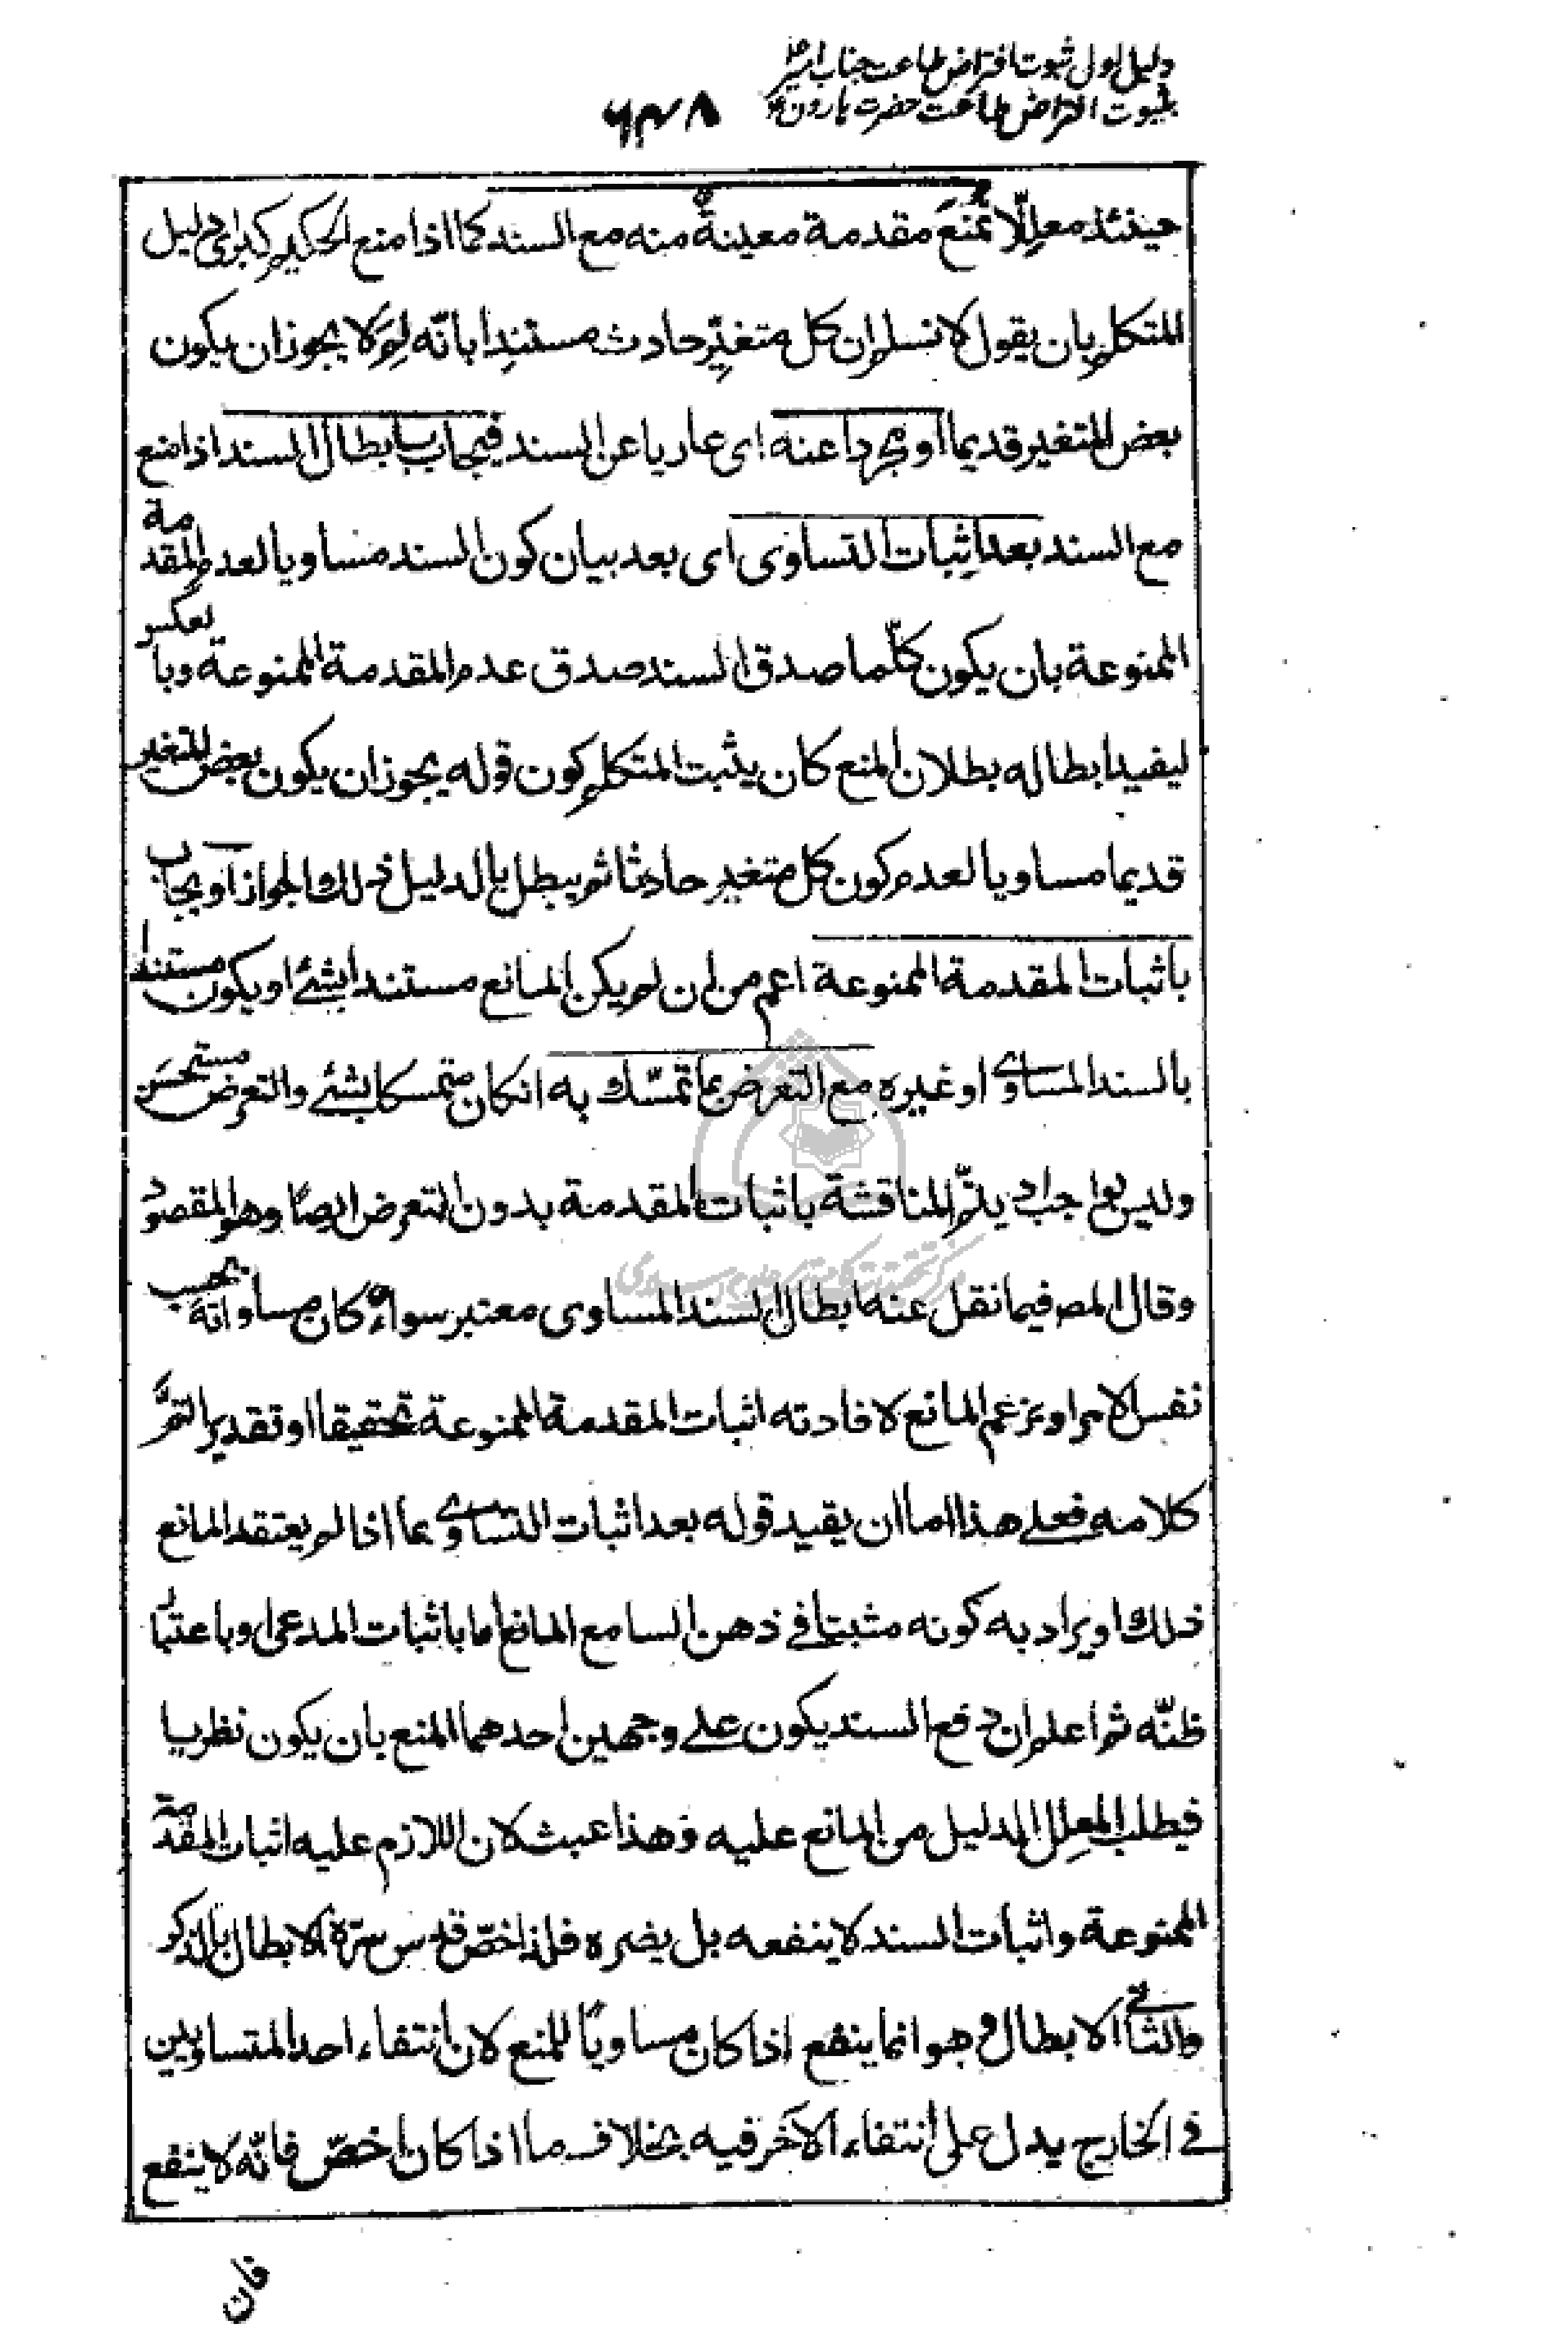 دلیل اول ثبوت افتراض طاعت جناب امیرؑ
بثبوت افتراض طاعت حضرت هارونؑ
۶۴۸
حينئذ معلِّلا تُمنَع مقدمة معينةٌ منه مع السند كما اذا منع الحكيم كبرى دليل
المتكلم بان يقول لا نسلم ان كل متغيِّر حادث مستنِدا بانّه لِمَ لا يجوز ان يكون
بعض المتغير قديما او مجردا عنه اى عاريا عن السند فيجاب بابطال السند اذا منع
مع السند بعد اِثبات التساوى اى بعد بيان كون السند مساويا لعدم المقدمة
الممنوعة بان يكون كلّما صدق السند صدق عدم المقدمة الممنوعة وبالعكس
ليفيد ابطاله بطلان المنع كان يثبت المتكلم كون قوله يجوز ان يكون بعض المتغير
قديما مساويا لعدم كون كل متغير حادثا ثم يبطل بالدليل ذلك الجواز او يجاب
باثبات المقدمة الممنوعة اعم من ان لم يكن المانع مستندا بشئ او يكون مستندا
بالسند المساوى او غيره مع التعرض بما تمسّك به انكان متمسكا بشئ والتعرض مستحسَن
وليس بواجب اذ يتمّ المناقشة باثبات المقدمة بدون التعرض ايضًا وهو المقصود
وقال المصـ فيما نقل عنه ابطال السند المساوى معتبر سواء كان مساواته بحسب
نفس الامر او بزعم المانع لافادته اثبات المقدمة الممنوعة تحقيقا او تقديرا تمَّ
كلامه فعلى هذا اما ان يقيد قوله بعد اثبات التساوى بما اذا لم يعتقد المانع
ذلك او يراد به كونه مثبتا فى ذهن السامع المانع اما باثبات المدعى او باعتبار
ظنّه ثم اعلم ان دفع السند يكون على وجهين احدهما المنع بان يكون نظريا
فيطلب المعلِل الدليل من المانع عليه وهذا عبث لان اللازم عليه اثبات المقدمة
الممنوعة واثبات السند لا ينفعه بل يضره فلذا خصّ قدس سرّه الابطال بالذكر
والثانى الابطال وهو انما ينفع اذا كان مساويًا للمنع لان انتفاء احد المتساويين
فى الخارج يدل على انتفاء الاخَر فيه بخلاف ما اذا كان اخصّ فانّه لا ينفع
فان